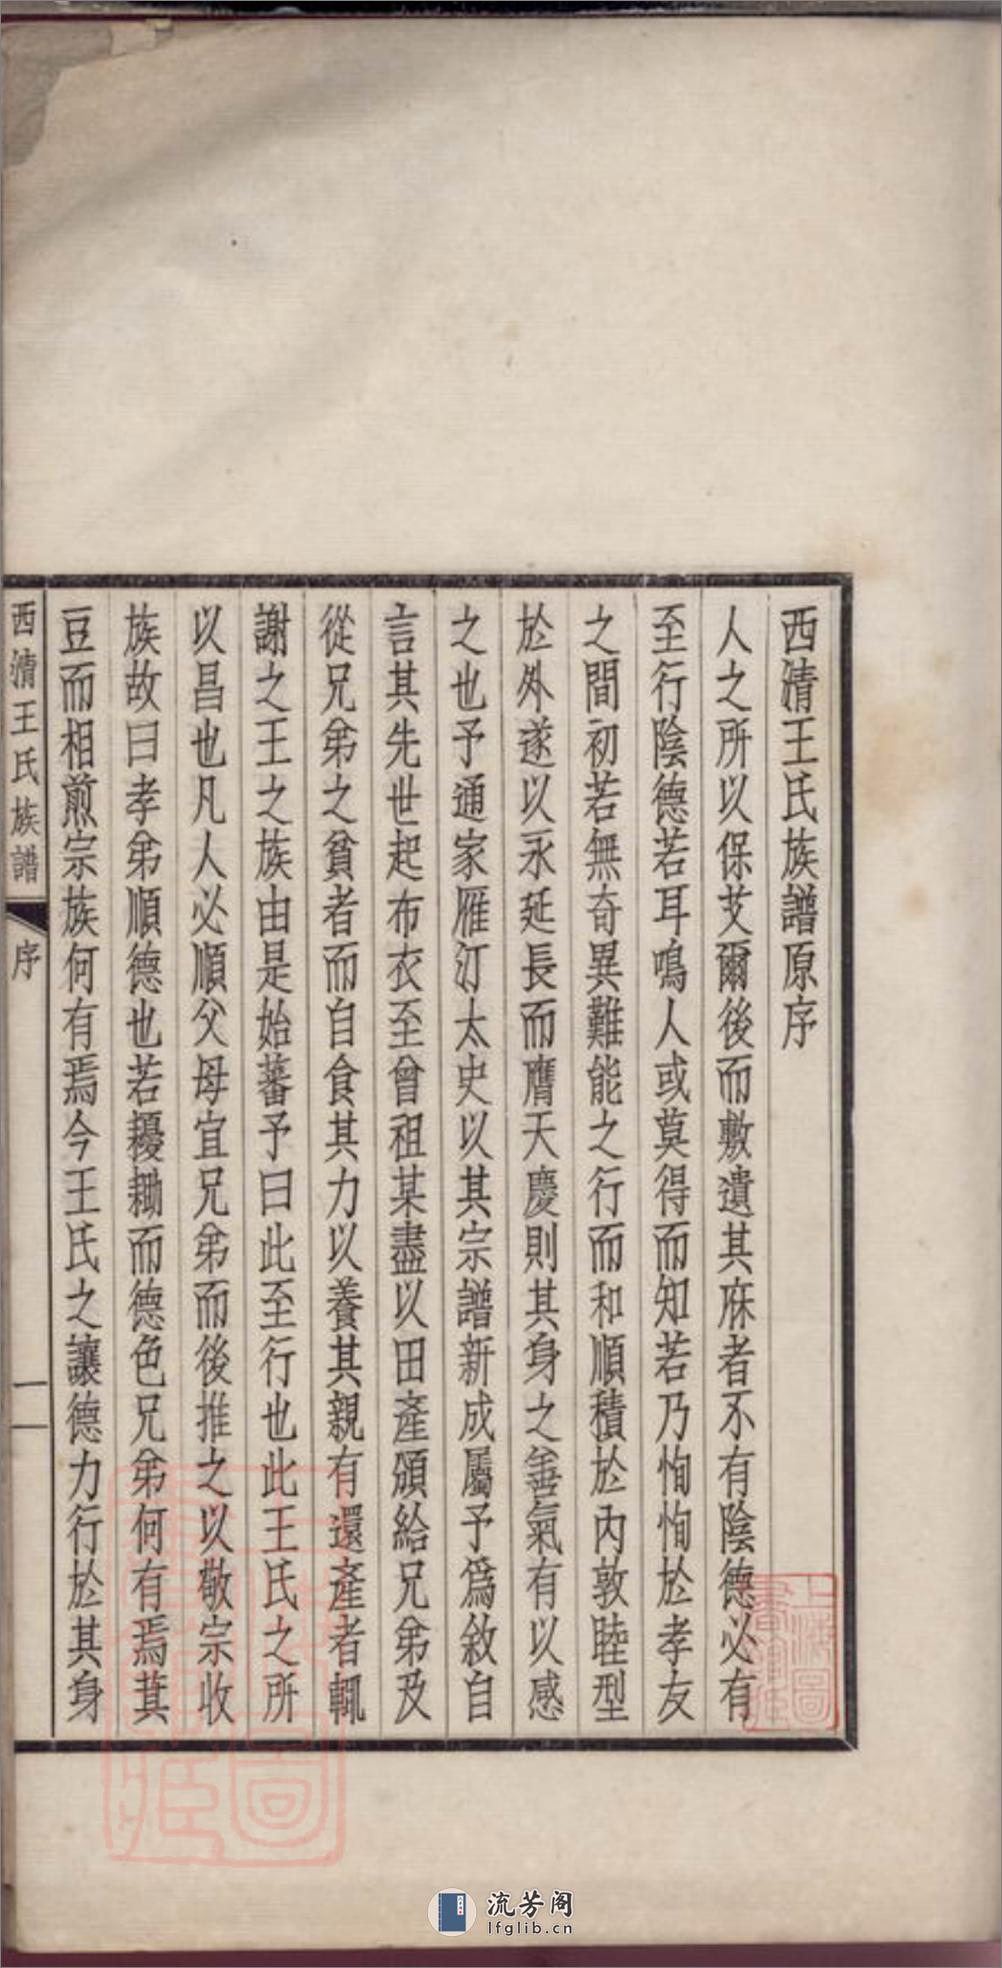 西清王氏族譜原序
人之所以保艾爾後而敷遺其庥者不有陰德必有
至行陰德若耳鳴人或莫得而知若乃恂恂於孝友
之間初若無奇異難能之行而和順積於內敦睦型
於外遂以永延長而膺天慶則其身之善氣有以感
之也予通家雁汀太史以其宗譜新成屬予為敘自
言其先世起布衣至曾祖某盡以田產頒給兄弟及
從兄弟之貧者而自食其力以養其親有還產者輒
謝之王之族由是始蕃予曰此至行也此王氏之所
以昌也凡人必順父母宜兄弟而後推之以敬宗收
族故曰孝弟順德也若耰鋤而德色兄弟何有焉萁
豆而相煎宗族何有焉今王氏之讓德力行於其身
西清王氏族譜
序
一
上海圖書館藏
流芳阁
lfglib.cn